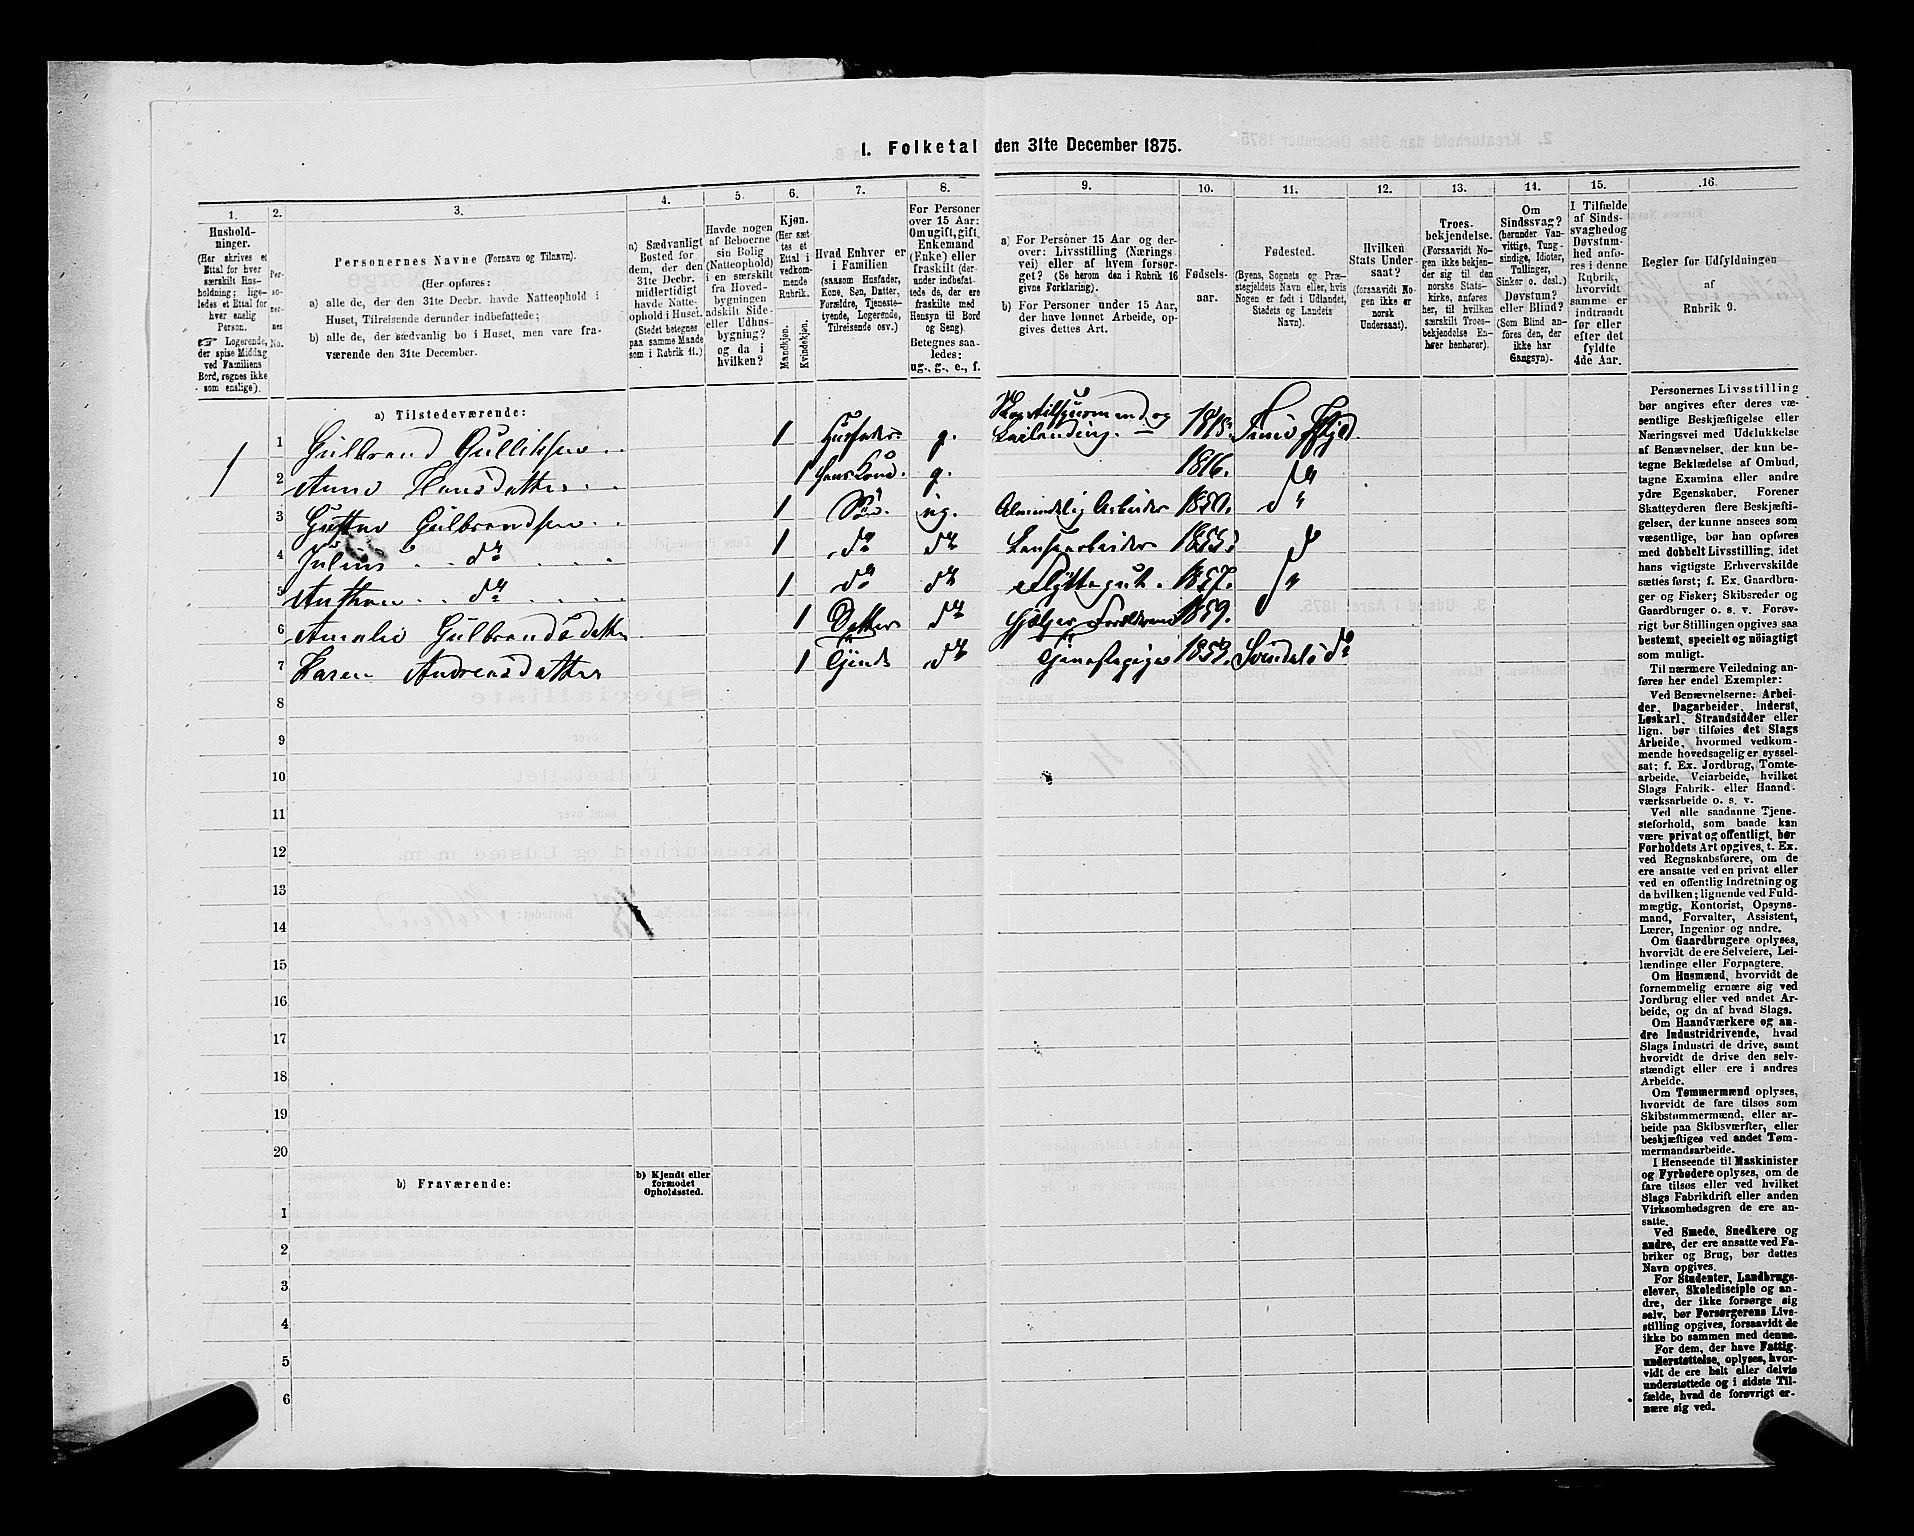 I. Folketal den 31te December 1875.
1.
2.
3.
4.
5.
6.
7.
8.
9.
10.
11.
12.
13.
14.
15.
16.
Hushold-
ninger.
(Her skrives et
Ettal for hver
særskilt Hus-
holdning; lige-
ledes et Ettal for
hver enslig
Person.
☞ Logerende,
der spise Middag
ved Familiens
Bord, regnes ikke
som enslige).
Per-
so-
ner-
nes
No.
Personernes Navne (Fornavn og Tilnavn).
(Her opføres:
a) alle de, der den 31te Decbr. havde Natteophold i
Huset, Tilreisende derunder indbefattede;
b) alle de, der sædvanlig bo i Huset, men vare fra-
værende den 31te December.
a) Sædvanligt
Bosted for
dem, der den
31te Decbr.
midlertidigt
havde Natte-
ophold i Huset.
(Stedet betegnes
paa samme Maade
som i Rubrik 11.)
Havde nogen
af Beboerne
sin Bolig
(Natteophold)
i en særskilt
fra Hoved-
bygningen
adskilt Side-
eller Udhus-
bygning?
og da i
hvilken?
Kjøn.
(Her sæt-
tes et
Ettal i
vedkom-
mende
Rubrik.
Mandkjøn.
Kvindekjøn.
Hvad Enhver er
i Familien
(saasom Husfader,
Kone, Søn, Datter,
Forældre, Tjeneste-
tyende, Logerende,
Tilreisende osv.)
For Personer
over 15 Aar:
Om ugift, gift,
Enkemand
(Enke) eller
fraskilt (der-
under indbefat-
tede de, der ere
fraskilte med
Hensyn til Bord
og Seng).
Betegnes saa-
ledes:
ug., g., e., f.
a) For Personer 15 Aar og der-
over: Livsstilling (Nærings-
vei) eller af hvem forsør-
get? (Se herom den i Rubrik 16
givne Forklaring).
b) For Personer under 15 Aar,
der have lønnet Arbeide, op-
gives dettes Art.
Fødsels-
aar.
Fødested.
(Byens, Sognets og Præ-
stegjeldets Navn eller, hvis
Nogen er født i Udlandet,
Stedets og Landets
Navn).
Hvilken
Stats Under-
saat?
(forsaavidt No-
gen ikke er
norsk
Undersaat).
Troes-
bekjendelse.
(Forsaavidt No-
gen ikke bekjen-
der sig til den
norske Stats-
kirke, anføres
her, til hvilken
særskilt Troes-
bekjendelse En-
hver henhører).
Om
Sindssvag?
(herunder Van-
vittige, Tung-
sindige, Idioter,
Tullinger,
Sinker o. desl.)
Døvstum?
eller Blind?
(Som Blind an-
føres den, der
ikke har
Gangsyn).
I Tilfælde
af Sinds-
svaghed og
Døvstum-
hed anfø-
res i denne
Rubrik,
hvorvidt
samme er
indtraadt
før eller
efter det
fyldte
4de Aar.
Regler for Udfyldningen
af
Rubrik 9.
a) Tilstedeværende:
1 1 Gulbrand Gulliksen 1 Husfader g. og Leilending. 1818. Tune Pgjeld
2 Anne Hansdatter 1 hans Kone. g. 1816. do
3 Gustav Gulbrandsen 1 Søn ug. Almindelig Arbeider 1850. do
4 Julius do 1 do do 1855.
5 Anthon do 1 do do 1857. do
6 Amalie Gulbrandsdatter 1 Datter do hjelper Forældrene 1859.
7 Karen Andreasdatter 1 Tjende do Tjenestepige 1853. do
8
9
10
11
12
13
14
15
16
17
18
19
20
b) Fraværende:
b) Kjendt eller
formodet
Opholdssted.
1
2
3
4
5
6
Personernes Livsstilling
bør angives efter deres væ-
sentlige Beskjæftigelse eller
Næringsvei med Udelukkelse
af Benævnelser, der kun be-
tegne Beklædelse af Ombud,
tagne Examina eller andre
ydre Egenskaber. Forener
Skatteyderen flere Beskjæfti-
gelser, der kunne ansees som
væsentlige, bør han opføres
med dobbelt Livsstilling, idet
hans vigtigste Erhvervskilde
sættes først; f. Ex. Gaardbru-
ger og Fisker; Skibsreder og
Gaardbruger o. s. v. Forøv-
rigt bør Stillingen opgives saa
bestemt, specielt og nøiagtigt
som muligt.
Til nærmere Veiledning an-
føres her endel Exempler:
Ved Benævnelserne: Arbei-
der, Dagarbeider, Inderst,
Løskarl, Strandsidder eller
lign. bør tilføies det Slags
Arbeide, hvormed vedkom-
mende hovedsagelig er syssel-
sat; f. Ex. Jordbrug, Tomte-
arbeide, Veiarbeide, hvilket
Slags Fabrik- eller Haand-
værksarbeide o. s. v.
Ved alle saadanne Tjene-
steforhold, som baade kan
være privat og offentligt, bør
Forholdets Art opgives, t. Ex.
ved Regnskabsførere, om de
ere ansatte ved en privat eller
ved en offentlig Indretning og
da hvilken; lignende ved Fuld-
mægtig, Kontorist, Opsyns-
mand, Forvalter, Assistent,
Lærer, Ingeniør og andre.
Om Gaardbrugere oplyses,
hvorvidt de ere Selveiere, Lei-
lændinge eller Forpagtere.
Om Husmænd, hvorvidt de
fornemmelig ernære sig ved
Jordbrug eller ved andet Ar-
beide, og da af hvad Slags.
Om Haandværkere og an-
dre Industridrivende, hvad
Slags Industri de drive, samt
hvorvidt de drive den selv-
stændigt eller ere i andres
Arbeide.
Om Tømmermænd oplyses,
hvorvidt de fare tilsøs som
Skibstømmermænd, eller ar-
beide paa Skibsværfter, eller
beskjæftiges ved andet Tøm-
mermandsarbeide.
I Henseende til Maskinister
og Fyrbødere oplyses, om de
fare tilsøs eller ved hvilket
Slags Fabrikdrift eller anden
Virksomhedsgren de ere an-
satte.
Ved Smede, Snedkere og
andre, der ere ansatte ved Fa-
briker og Brug, bør dettes
Navn opgives.
For Studenter, Landbrugs-
elever, Skoledisciple og an-
dre, der ikke forsørge sig
selv, bør Forsørgerens Livs-
stilling opgives, forsaavidt de
ikke bo sammen med denne.
For dem, der have Fattig-
understøttelse, oplyses, hvor-
vidt de ere helt eller delvis
understøttede og i sidste Til-
fælde, hvad de forøvrigt er-
nære sig ved.